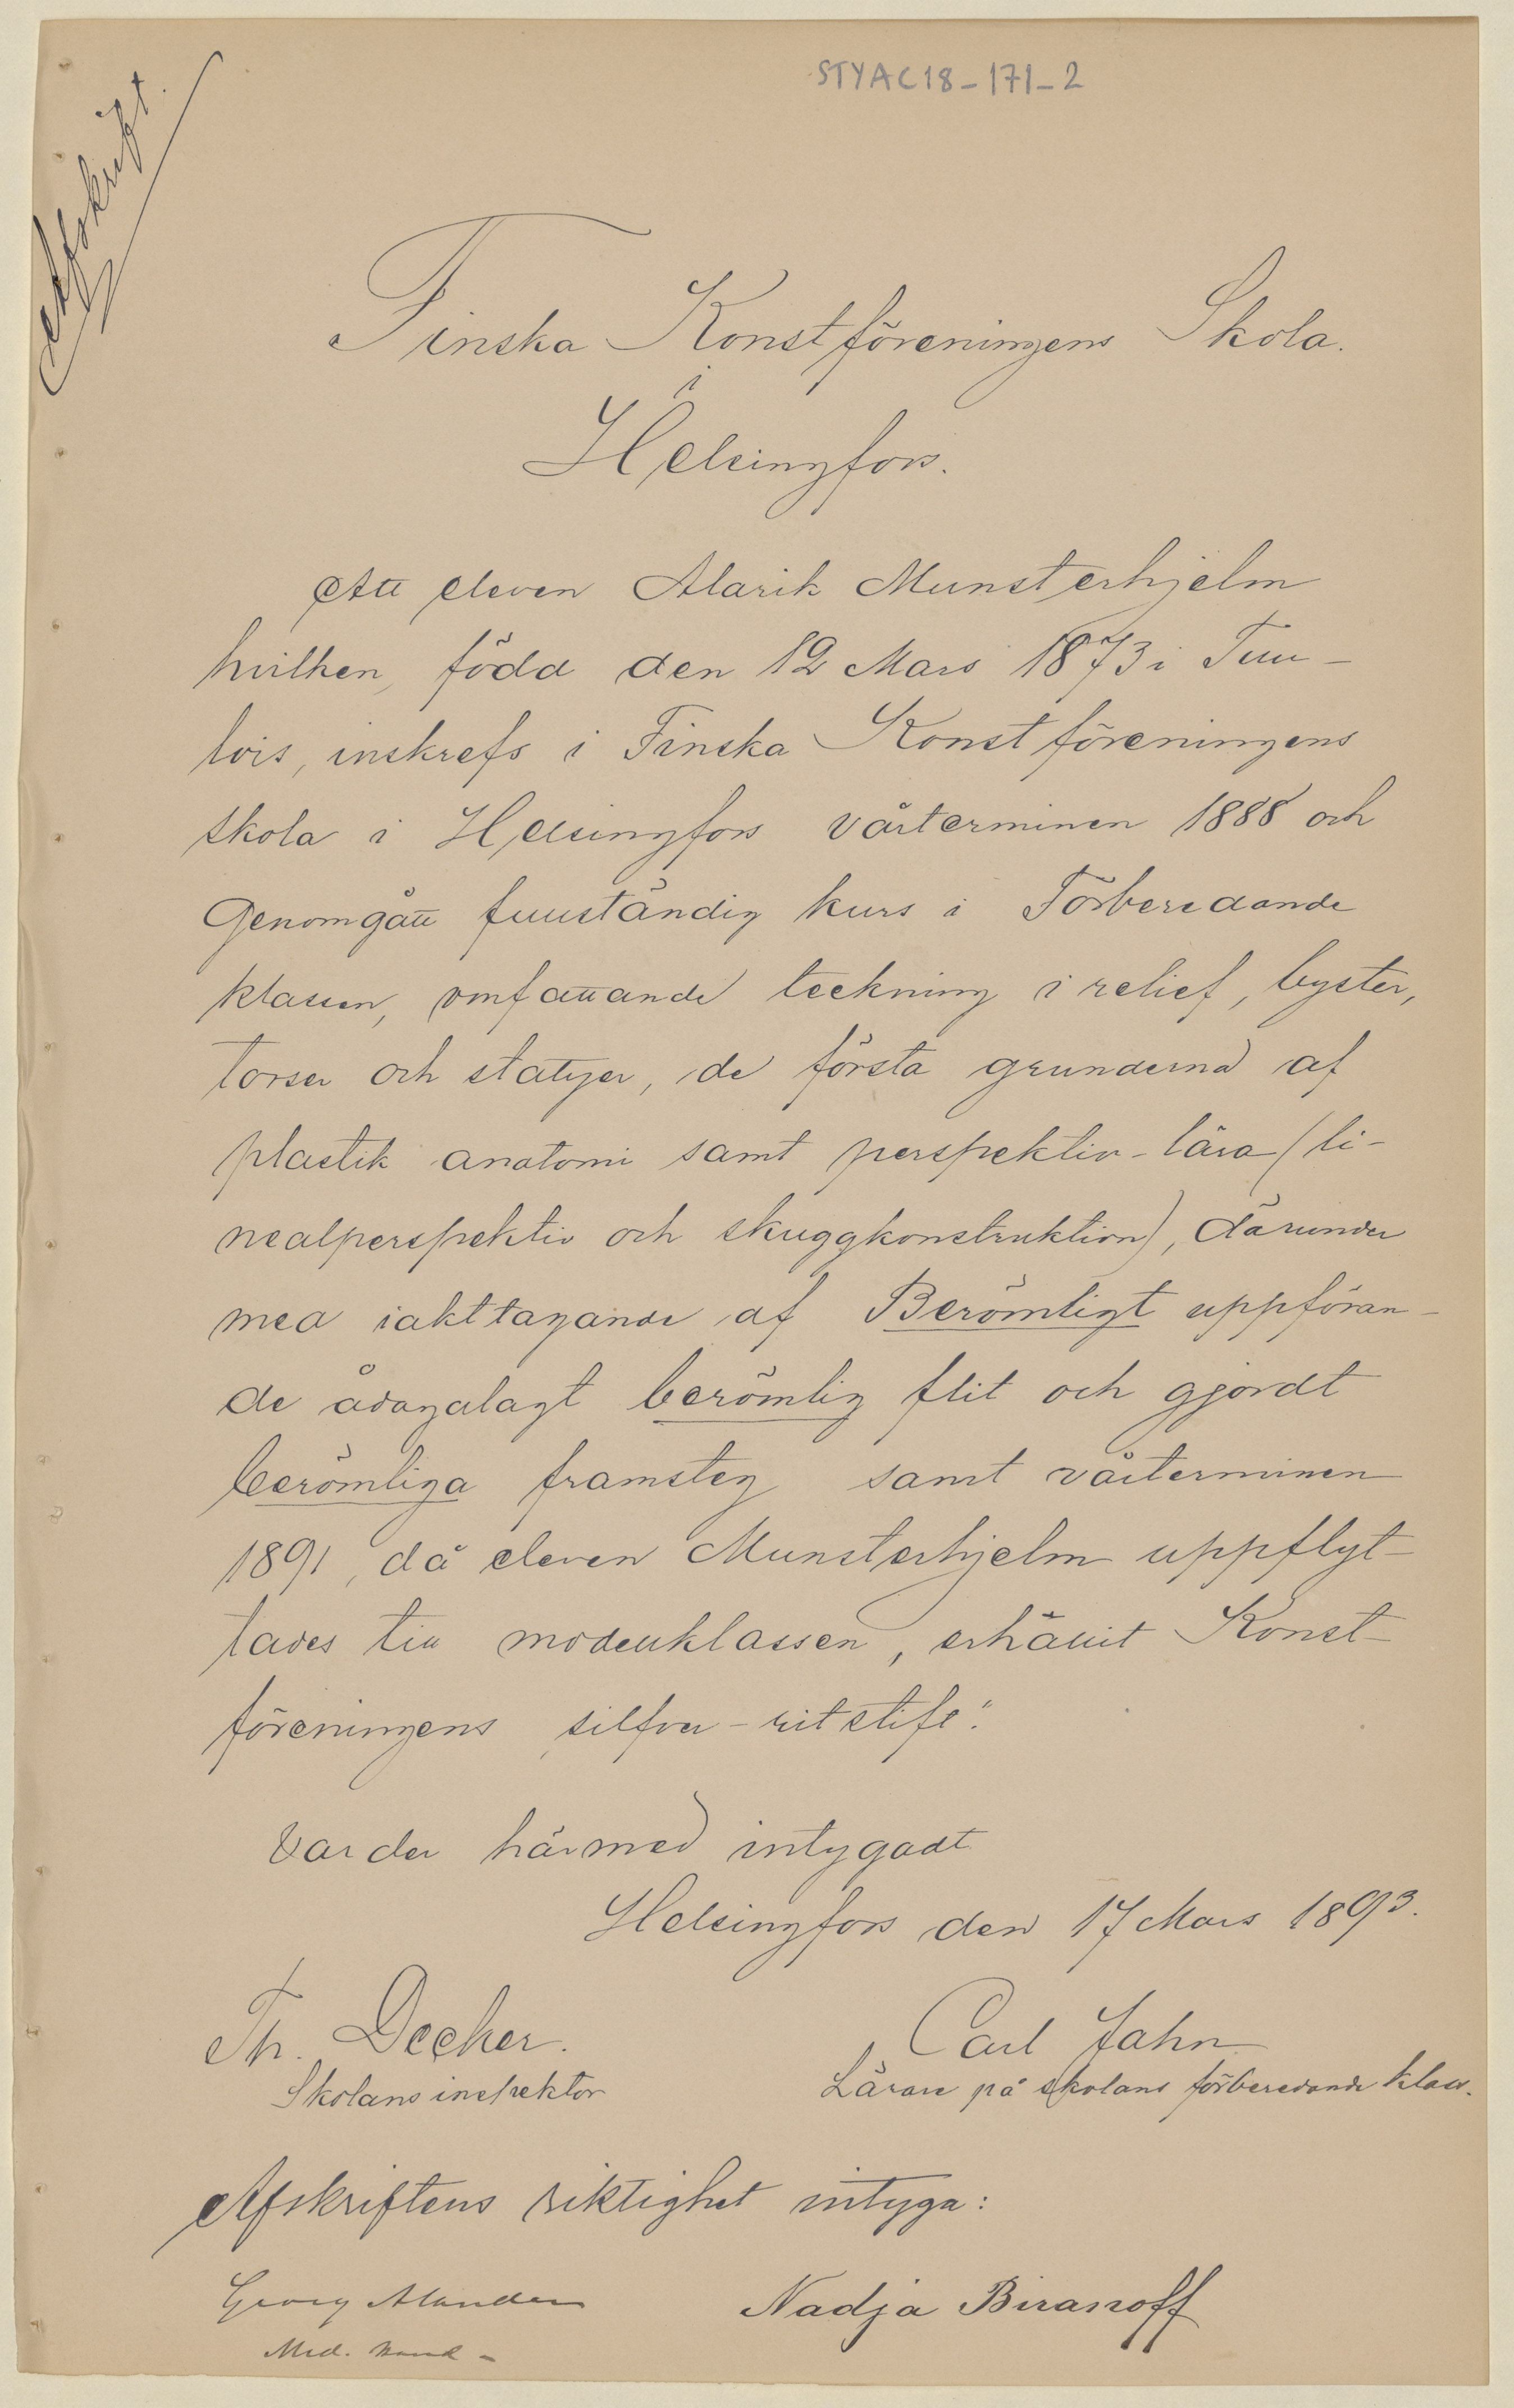 STYAC18-171-2
Afskrift.
Finska Konstföreningens Skola.
i
Helsingfors.
Att eleven Alarik Munsterhjelm
hvilken, född den 12 Mars 1873 i Tuu-
lois, inskrefs i Finska Konstföreningens
skola i Helsingfors vårterminen 1888 och
Genomgått fullständig kurs i Förberedande
klassen, omfattande teckning i relief, byster,
torser och statyer, de första grunderna af
plastik anatomi samt perspektiv-lära (li-
nealperspektiv och skuggkonstruktion), därunder
med iakttagande af Berömligt uppföran-
de ådagalagt berömlig flit och gjordt
berömliga framsteg samt vårterminen
1891, då eleven Munsterhjelm uppflyt-
tades till modellklassen, erhållit Konst-
föreningens silfver-ritstift".
Varder härmed intygadt
Helsingfors den 17 Mars 1893.
Th. Decker. Carl Jahn
Skolans inspektor Lärare på skolans förberedande klass.
Afskriftens riktighet intyga:
Georg Nadja Biranoff
Med. kand-